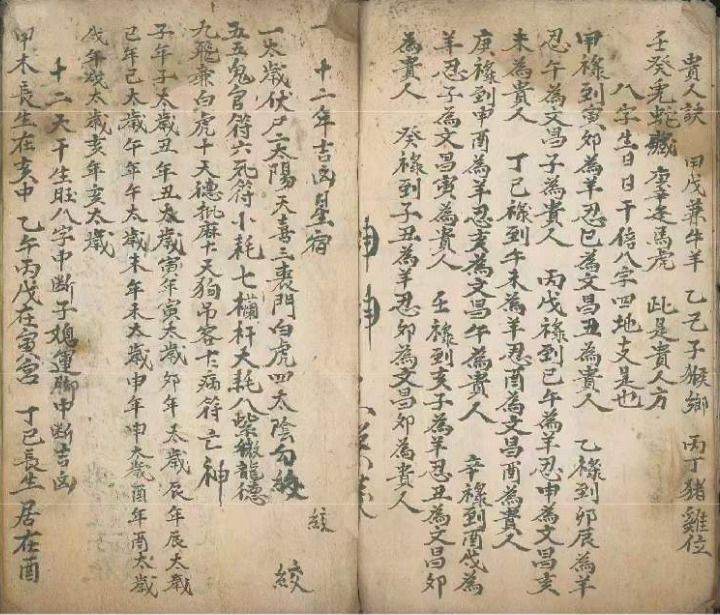 貴人訣 甲戊兼牛羊 乙己子猴鄉 丙丁猪雞位
壬癸兎蛇藏 庚辛逢馬虎 此是貴人方
八字生日日干倍八字四地支是也
甲祿到寅卯為羊忍巳為文昌丑為貴人 乙祿到卯辰為羊
忍午為文昌子為貴人 丙戊祿到巳午為羊忍申為文昌亥
未為貴人 丁己祿到午未為羊忍酉為文昌酉為貴人
庚祿到申酉為羊忍亥為文昌午為貴人 辛祿到酉戌為
羊忍子為文昌寅為貴人 壬祿到亥子為羊忍丑為文昌卯
為貴人 癸祿到子丑為羊忍卯為文昌卯為貴人
十二年吉凶星宿
一太歲伏尸二太陽天喜三喪門白虎四太陰勾絞 絞
五五鬼官符六死符小耗七欄杆大耗八紫微龍德 絞
九飛兼白虎十天德批麻十一天狗吊客十二病符亡神
子年子太歲丑年丑太歲寅年寅太歲卯年太歲辰年辰太歲
巳年巳太歲午年午太歲未年未太歲申年申太歲酉年酉太歲
戌年戌太歲亥年亥太歲
十二天干生旺八字中斷子媳運脚中斷吉凶
甲木長生在亥中 乙午丙戊在寅宮 丁己長生居在酉